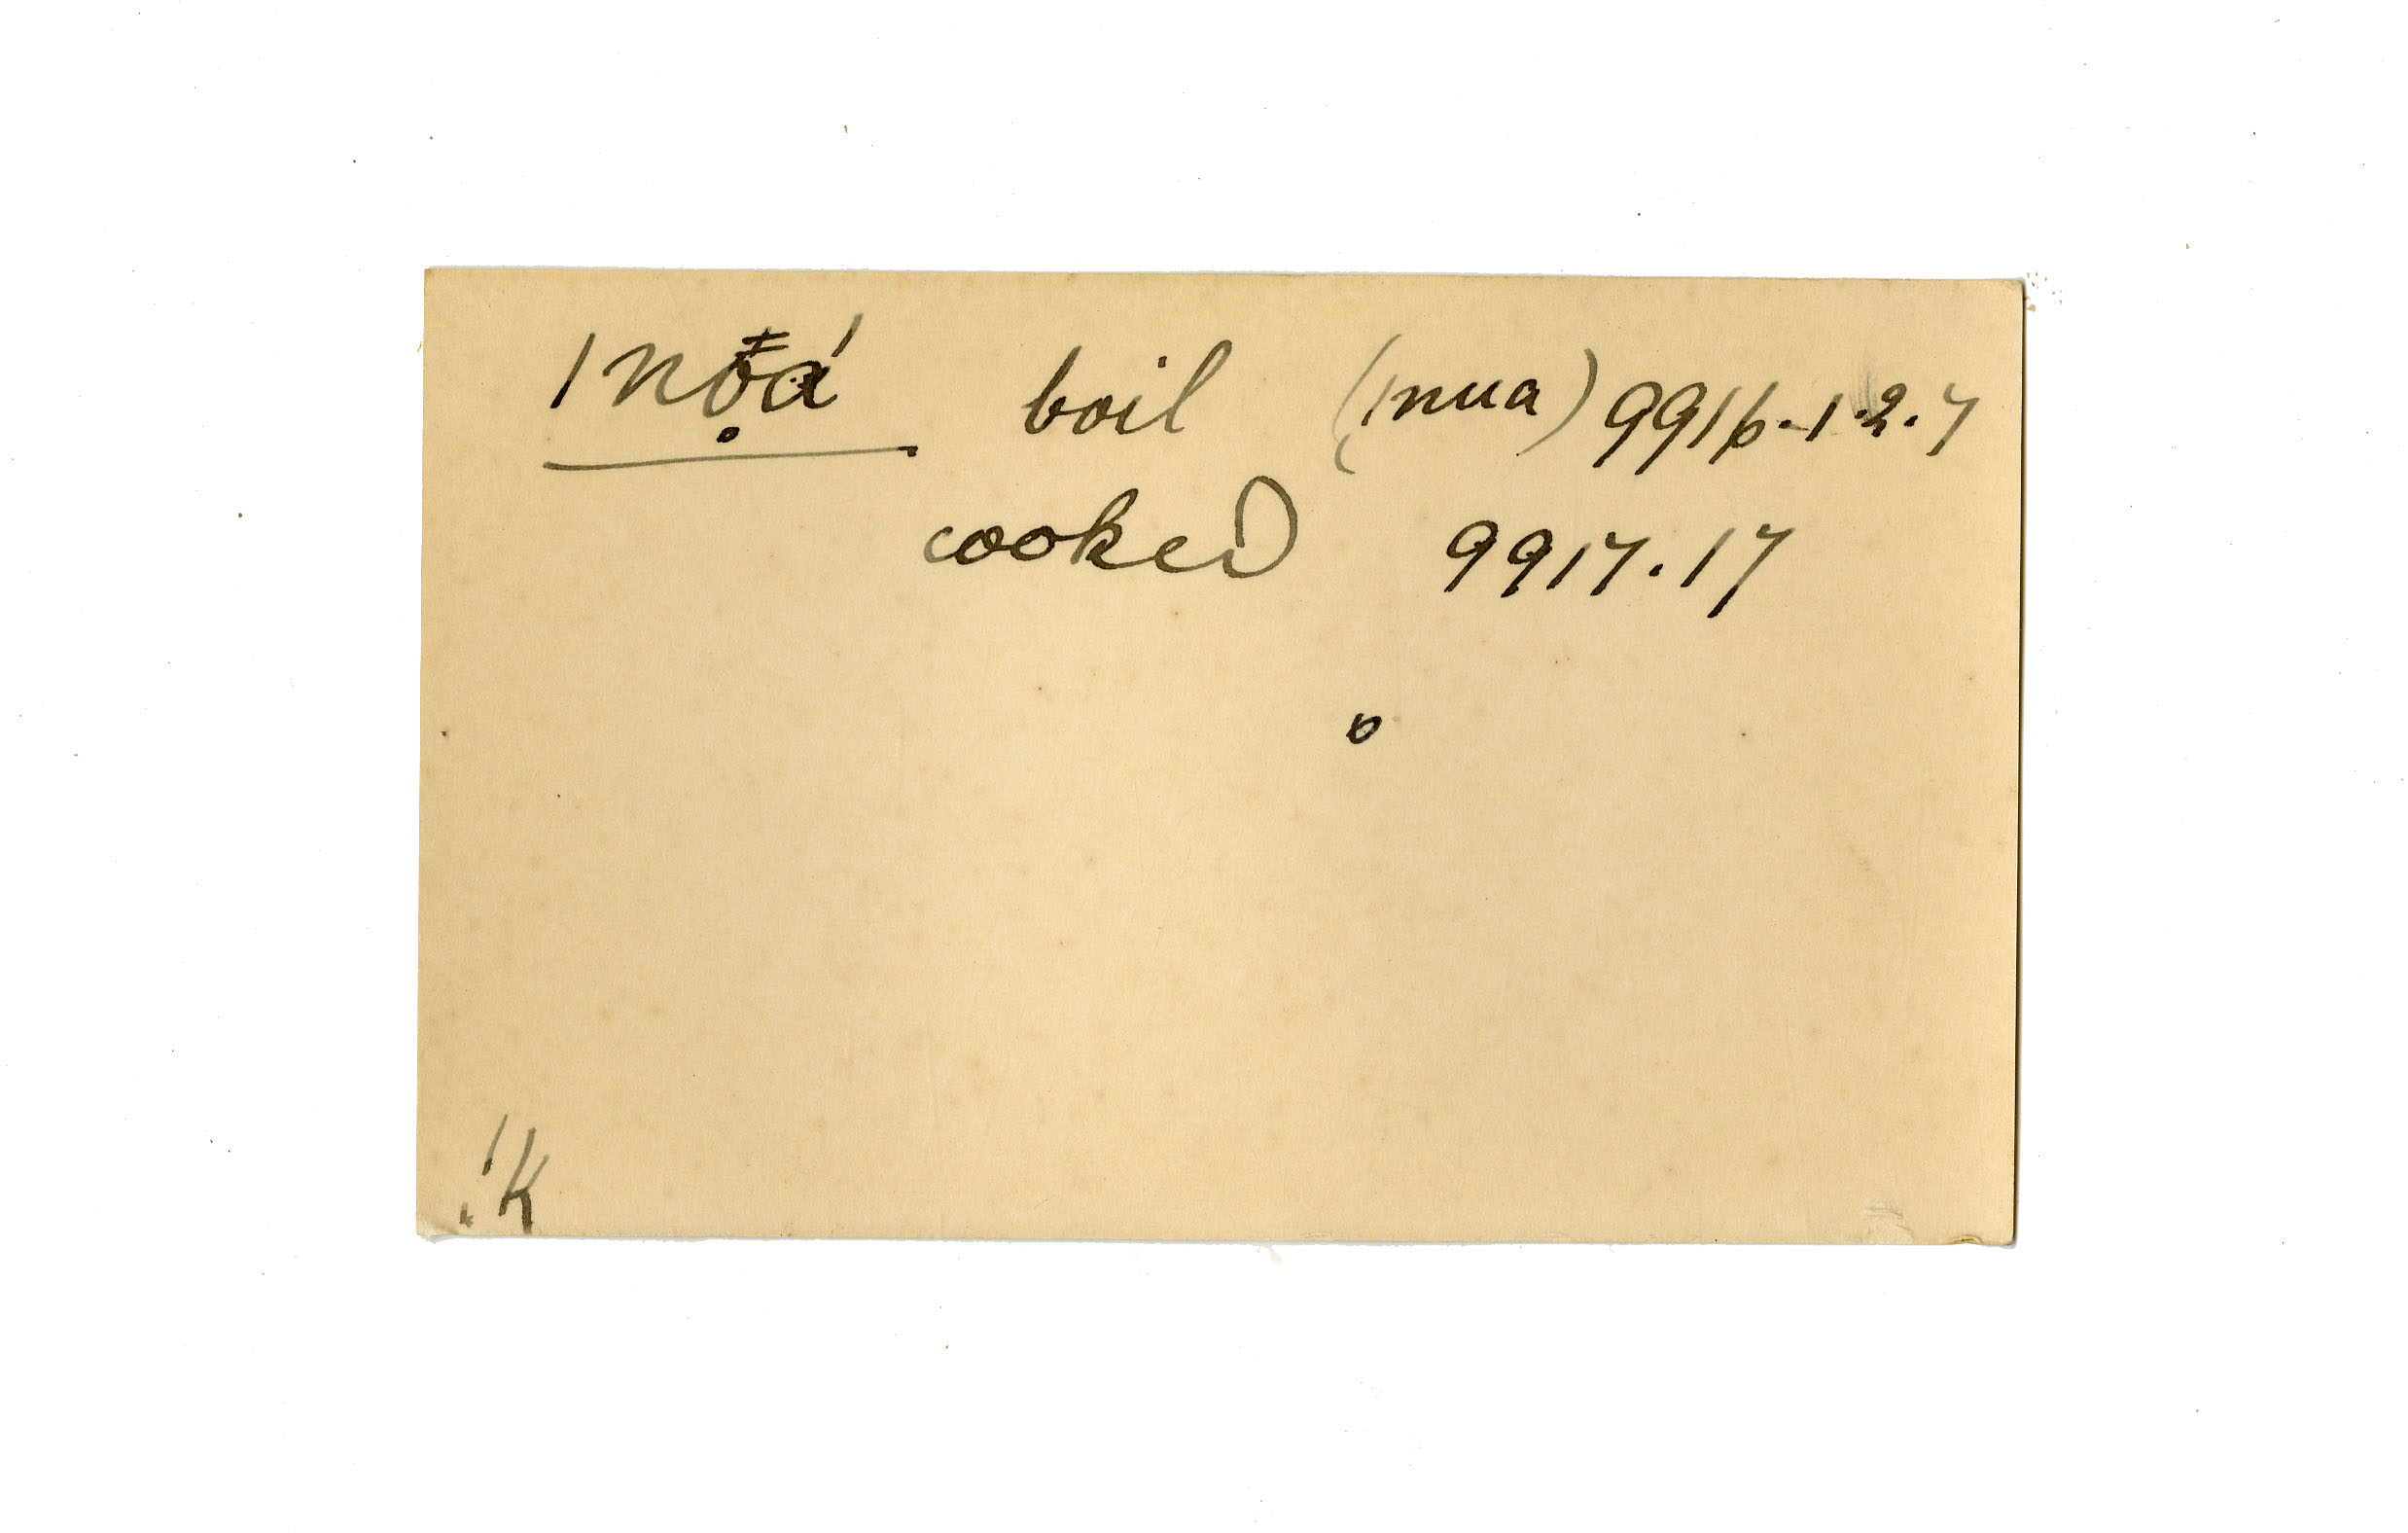 |nọ̄́á boil (|nua) 9916.1.2.7
cooked 9917.17
o
!K